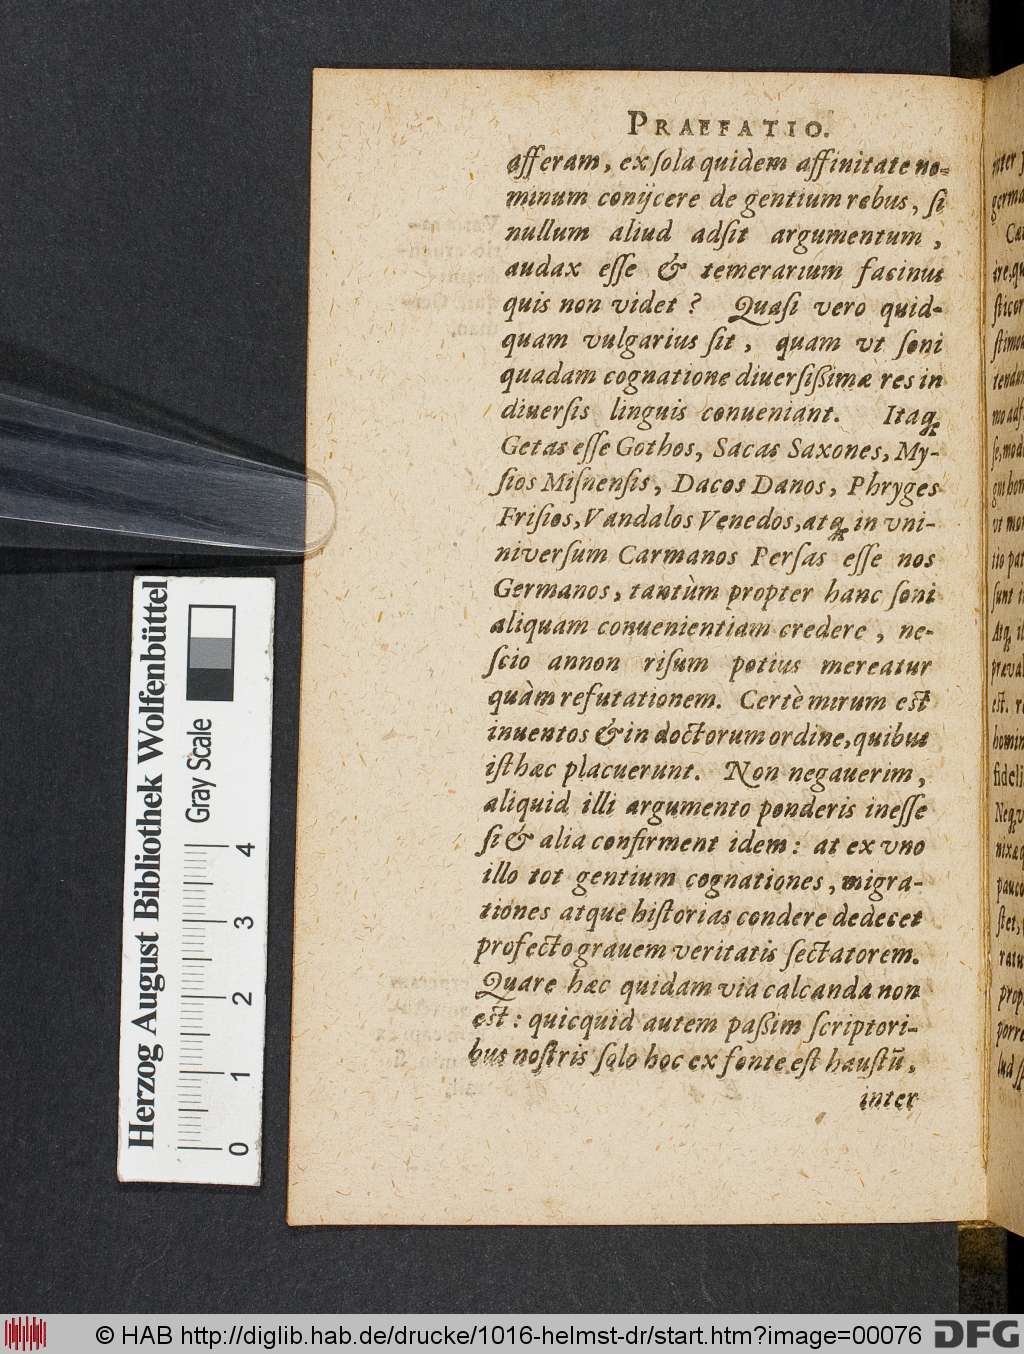 PRAEFATIO.
afferam, ex ſola quidem affinitate no-
minum conijcere de gentium rebus, ſi
nullum aliud adſit argumentum,
audax eſſe & temerarium facinus
quis non videt? Quaſi vero quid-
quam vulgarius ſit, quam vt ſoni
quadam cognatione diuerſißimæ res in
diuerſis linguis conueniant. Itaq;
Getas eſſe Gothos, Sacas Saxones, My-
ſios Miſnenſis, Dacos Danos, Phryges
Friſios, Vandalos Venedos, atq; in vni-
niverſum Carmanos Perſas eſſe nos
Germanos, tantùm propter hanc ſoni
aliquam conuenientiam credere, ne-
ſcio annon riſum potius mereatur
quàm refutationem. Certè mirum eſt
inuentos & in doctorum ordine, quibus
iſthæc placuerunt. Non negauerim,
aliquid illi argumento ponderis ineſſe
ſi & alia confirment idem: at ex vno
illo tot gentium cognationes, migra-
tiones atque hiſtorias condere dedecet
profecto grauem veritatis ſectatorem.
Quare hæc quidam via calcanda non
eſt: quicquid autem paßim ſcriptori-
bus noſtris ſolo hoc ex fonte eſt hauſtū,
inter
Herzog August Bibliothek Wolfenbüttel
Gray Scale
0 1 2 3 4
© HAB http://diglib.hab.de/drucke/1016-helmst-dr/start.htm?image=00076
DFG